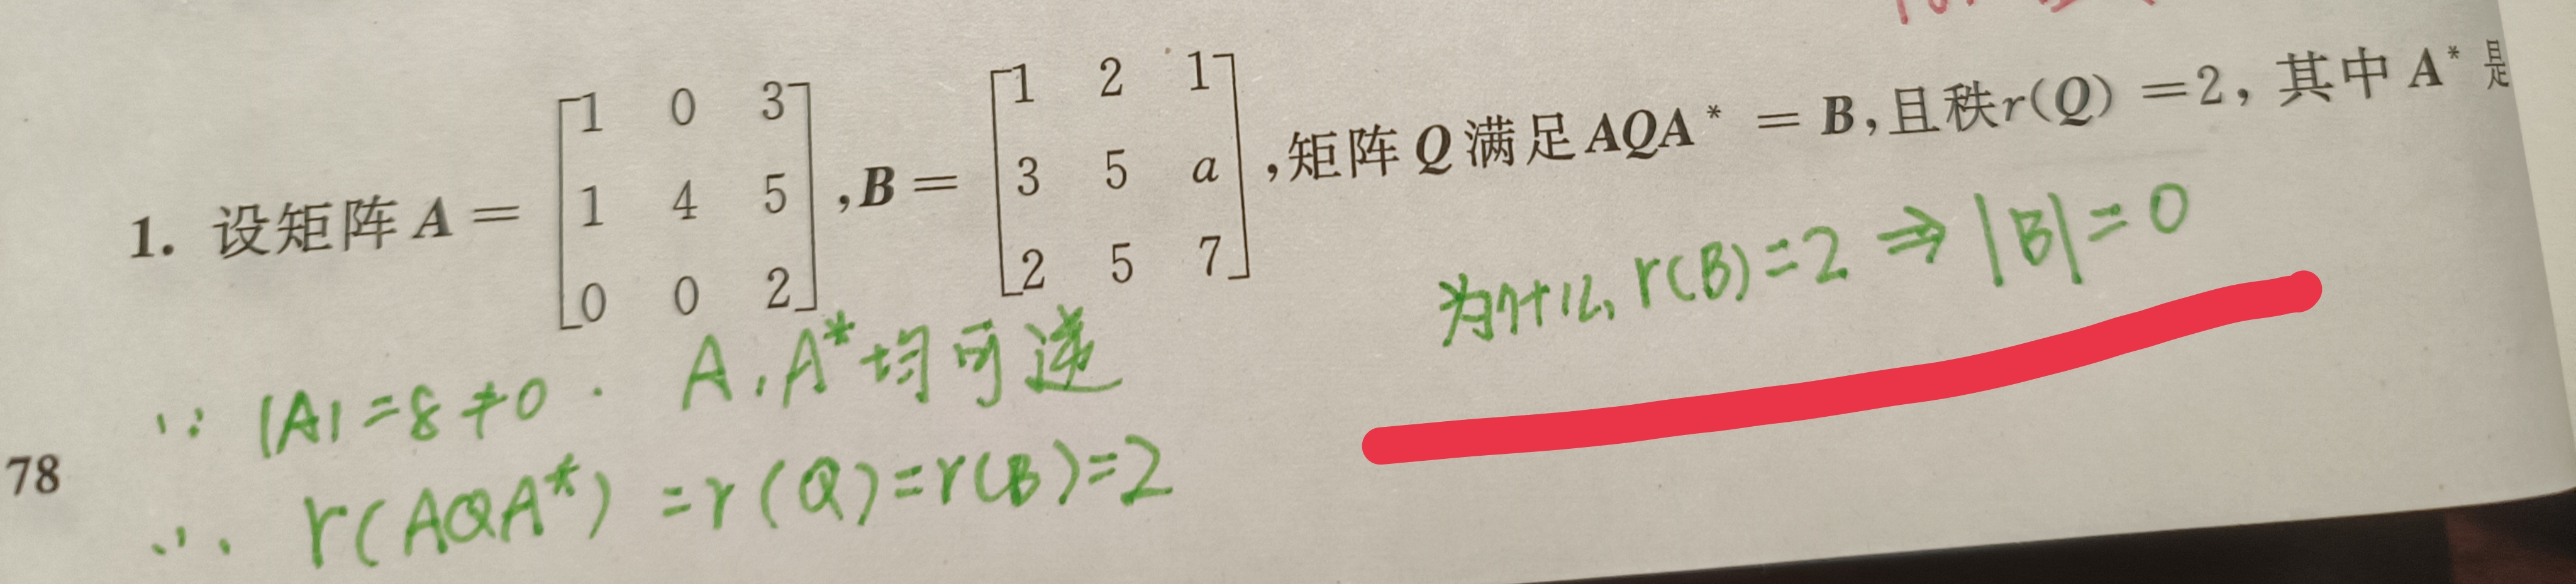 1. 设矩阵 A = [1 0 3; 1 4 5; 0 0 2], B = [1 2 1; 3 5 a; 2 5 7], 矩阵 Q 满足 AQA* = B, 且秩r(Q) = 2, 其中 A* 是
r(B)=2 ⇒ |B|=0
∵ |A|=8≠0. A, A*均可逆
∴ r(AQA*) = r(Q) = r(B) = 2
78